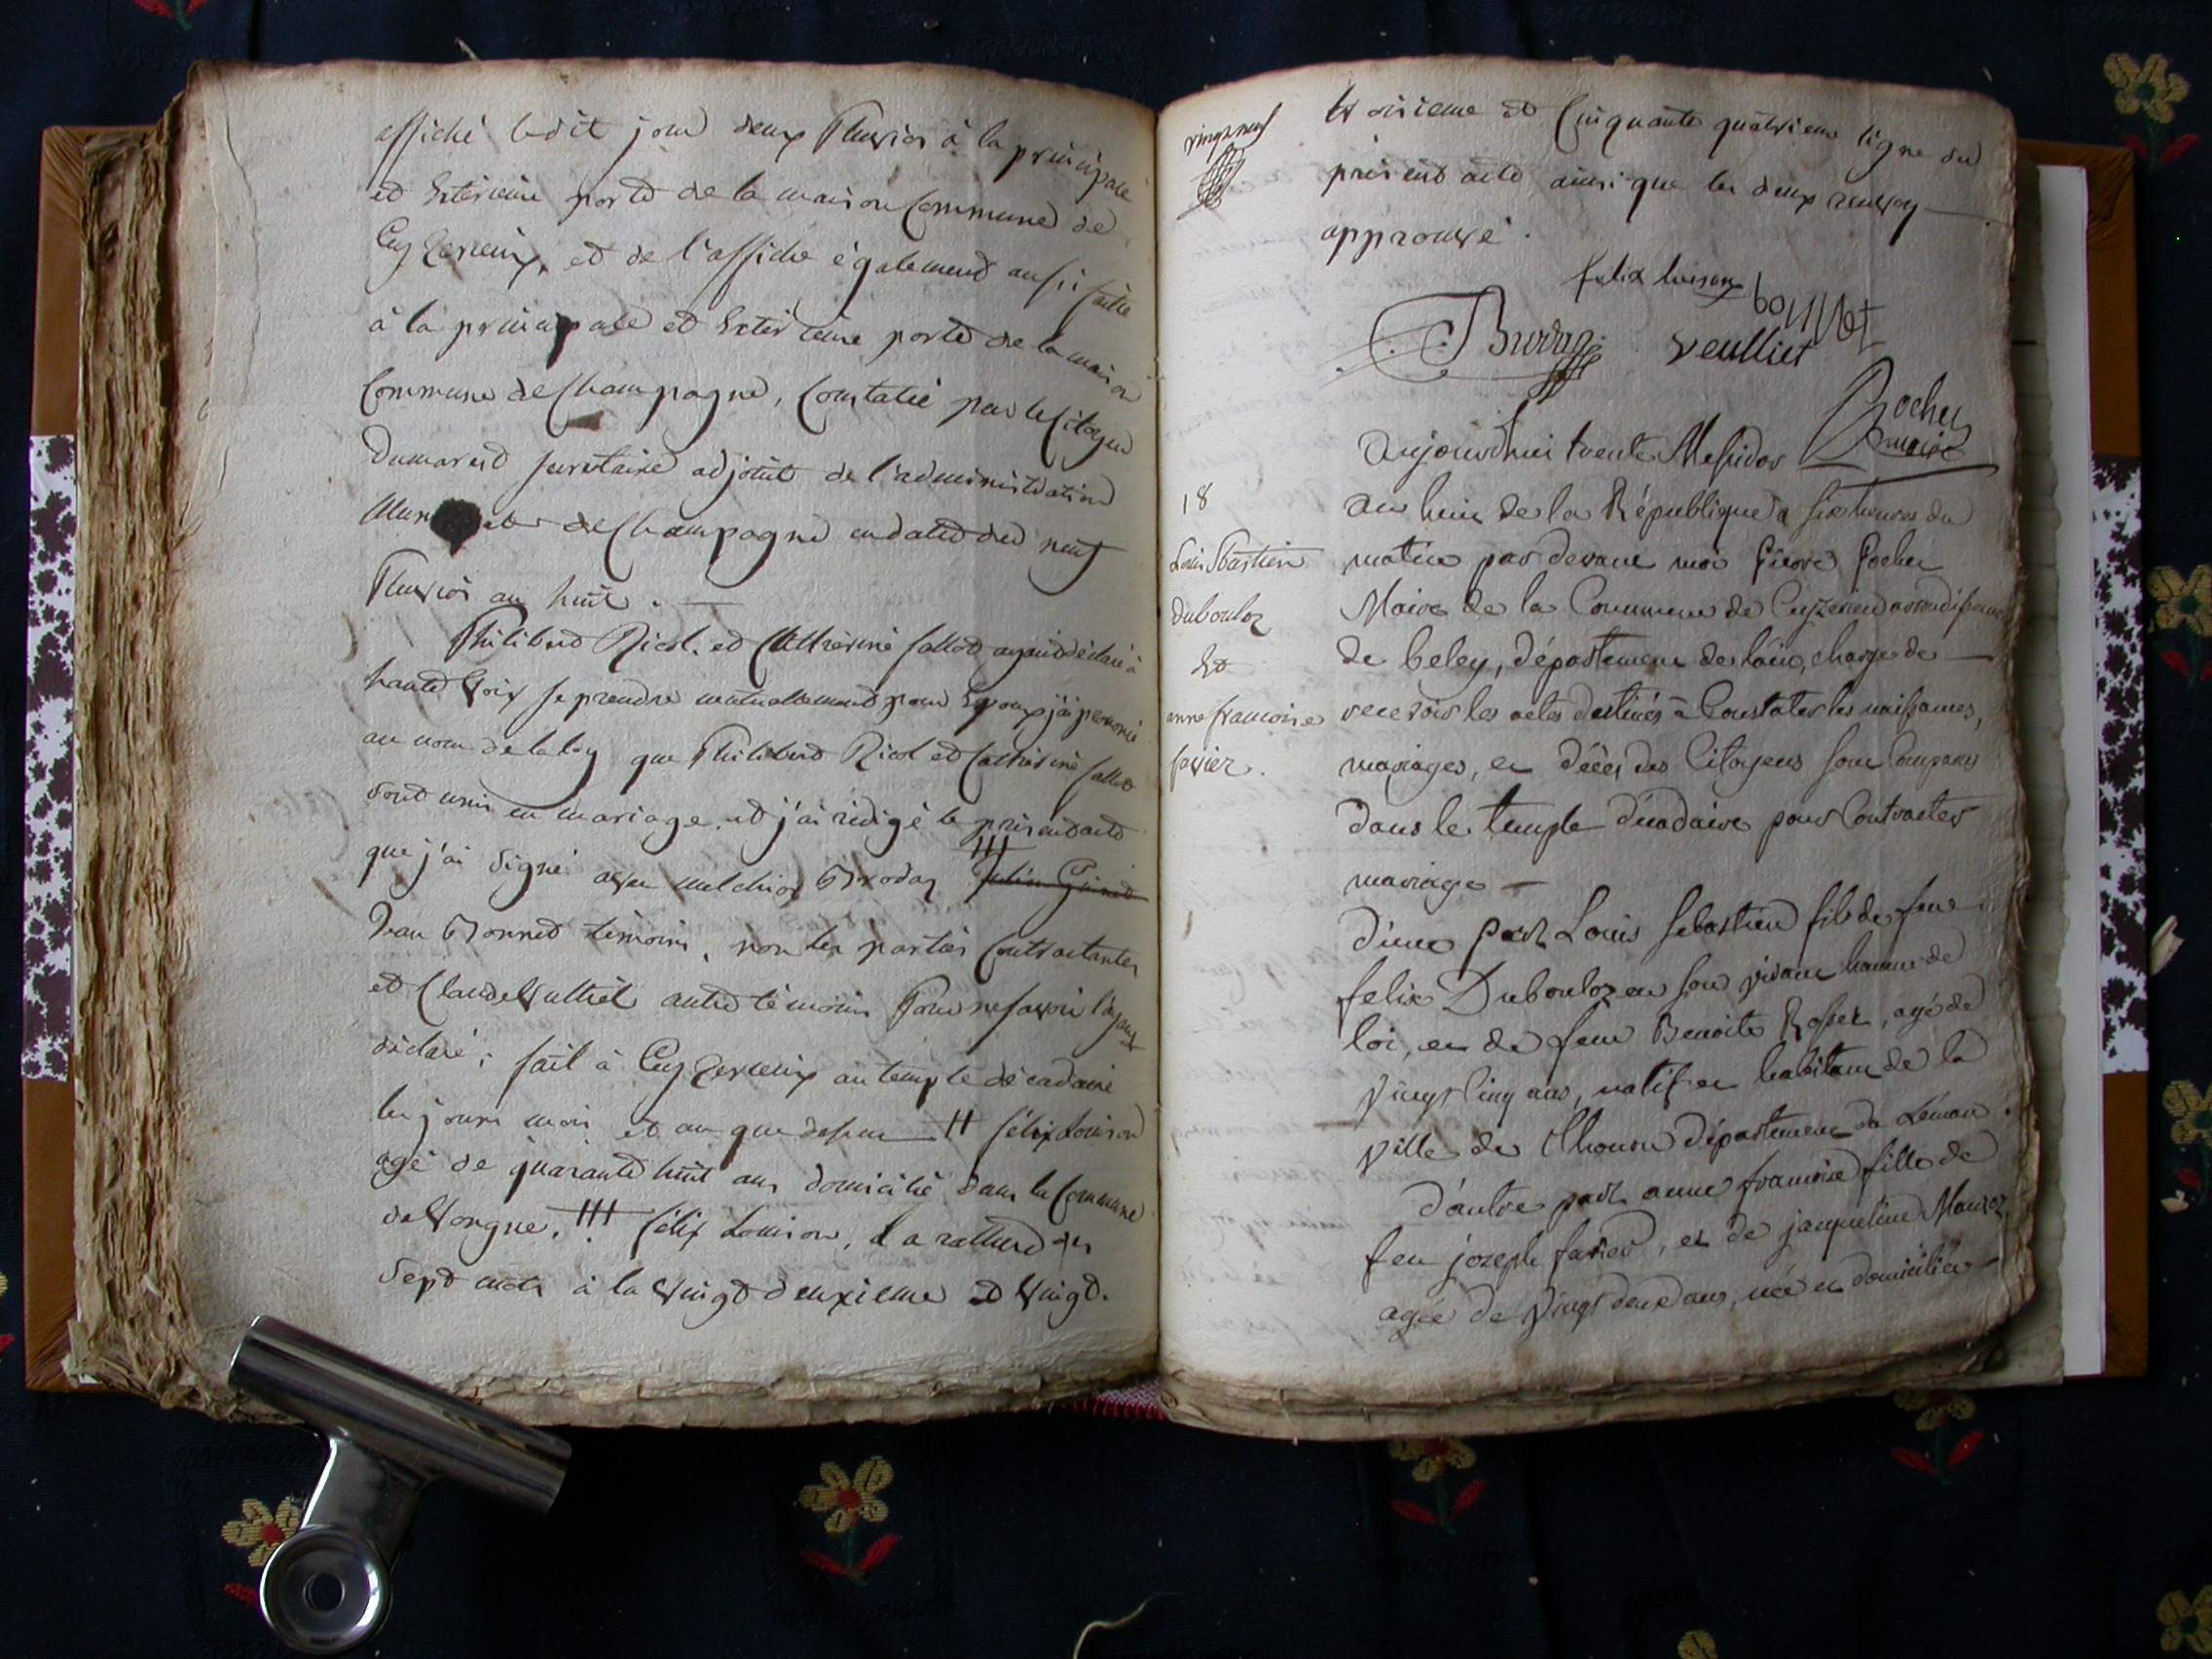 affiché ledit jour deux Pluvios à la principale
et Exterieure porte de la maison Commune de
Cuyzerieux, et de l'affiche également aussi faitte
à la principale et Exterieure porte de la maison
Commune de Champagne, Constatée par le Citoyen
Dumarest secretaire adjoint de l'administration
de Champagne en date du neuf
Pluvios an huit.
Philibert Nicol. et Catherine Callod ayant déclaré à
haute Voix se prendre mutuellement pour Epoux j'ai prononcé
au nom de la loy que Philibert Nicol et Catherine Callod
sont unis en mariage. et j'ai rédigé le présent acte
que j'ai signé avec melchior Brodaz
Jean Bonned témoins, non les parties Contractantes
et Claude Vulliet autre témoin Pour ne savoir l'ayant
déclaré; fait à Cuyzerieux au temple décadaire
les jours mois et an que dessus félix Louison
agé de quarante huit ans domicilié dans la Commune
de Vongne. félix Louison, il a ratturé des
Sept mots à la Vingt deuxieme et Vingt.
vingt neuf
troisieme et Cinquante quatrieme ligne du
présent acte ainsi que les deux renvoy
approuvé.
felix louison
bonnet
veulliet
Rocher
maire
aujourdhui trente Messidor
18
an huit de la République à six heures du
Louis Sbastien
matin par devant moi Pierre Rocher
dubouloz
Maire de la Commune de Cuyzerieu arrondissement
Et
de beley, département de l'ain, charge de
anne francoise
recevoir les actes destinés à Constater les naissances,
favier.
mariages, et décès des Citoyens sont Comparus
dans le temple décadaire pour Contracter
mariage
d'une part Louis sebastien fils de feu
felix Dubouloz en son vivant homme de
loi, et de feue Benoite Rosset, agé de
vingt cinq ans, natif et habitant de la
ville de Thonon département du Léman
d'autre part anne francoise fille de
feu joseph favier, et de jacqueline
agée de vingt deux ans, née et domiciliée